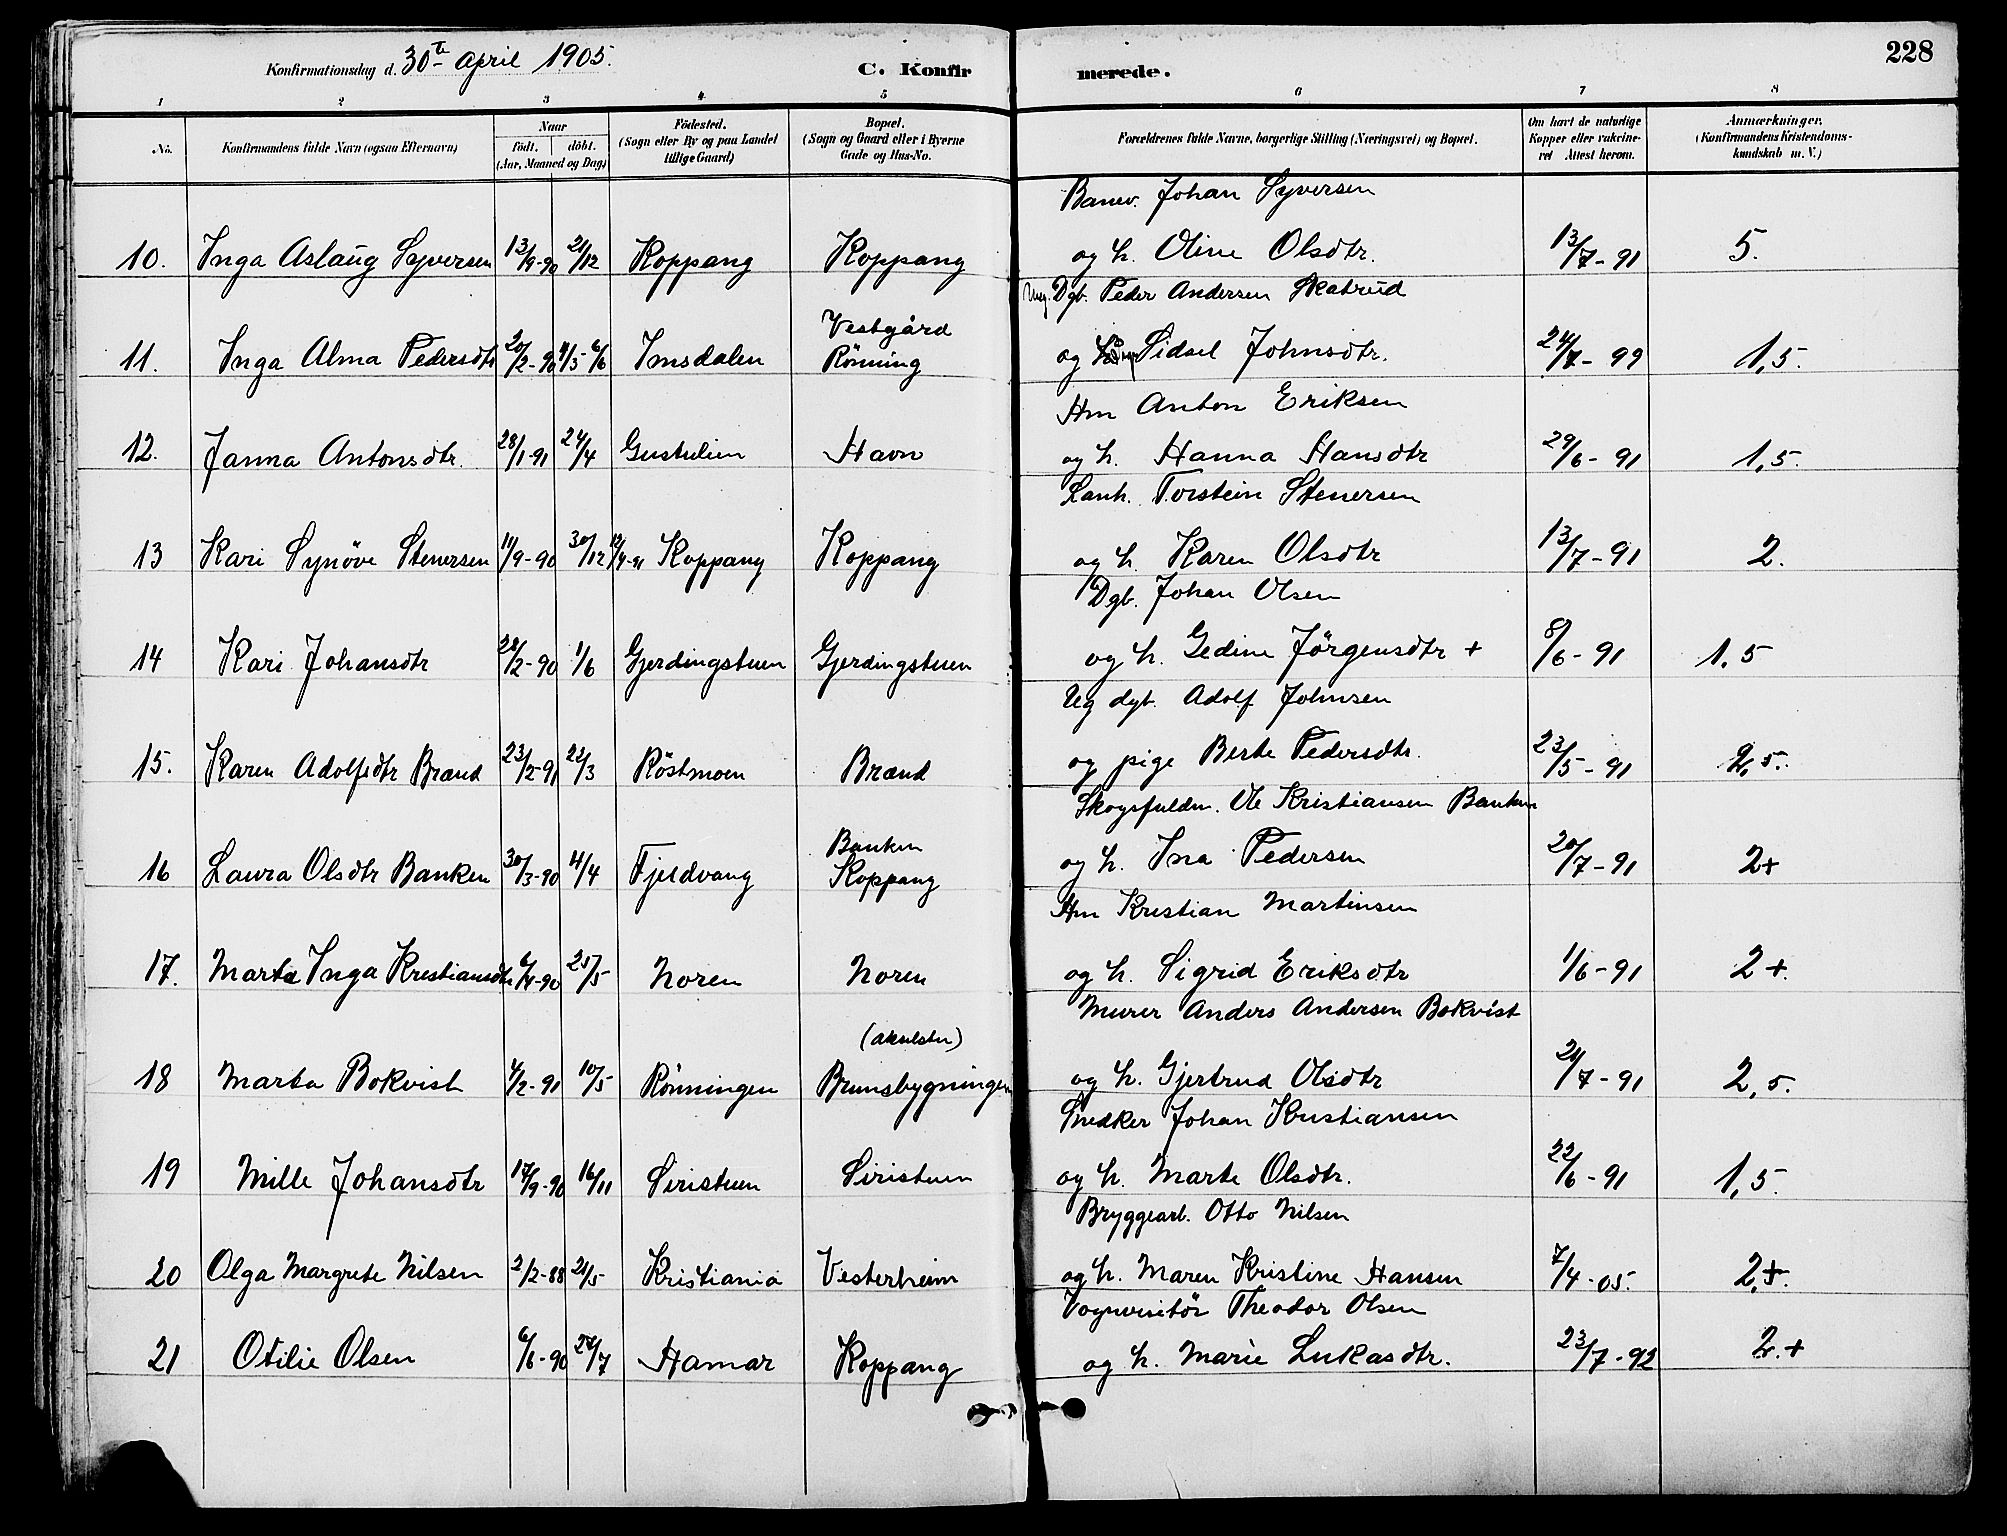 Konfirmationsdag d. 30te April 1905.
C. Konfirmerede.
228
1 2 3 4 5 6 7 8
No.
Konfirmandens fulde Navn (ogsaa Efternavn)
Naar
født. døbt.
(Aar, Maaned og Dag)
Fødested.
(Sogn eller By og paa Landet
tillige Gaard)
Bopæl.
(Sogn og Gaard eller i Byerne
Gade og Hus-No.
Forældrenes fulde Navne, borgerlige Stilling (Næringsvei) og Bopæl.
Om havt de naturlige
Kopper eller vakcine-
ret Attest herom.
Anmærkninger.
(Konfirmandens Kristendoms-
kundskab m. V.)
Banev. Johan Syversen
10. Inga Aslaug Syversen 13/9-90 21/12 Koppang Koppang og h. Oline Olsdtr. 13/7-91 5.
Ung. Dgb. Peder Andersen Skatrud
Vestgård
11. Inga Alma Pedersdtr 20/2-90 4/5-6/6 Imsdalen Rönning og Sidsel Johnsdtr. 24/7-99 1,5.
Hm Anton Eriksen
12. Janna Antonsdtr. 28/1-91 24/4 Gustulien Havn og h. Hanna Hansdtr 29/6-91 1,5.
Lanh. Torstein Stenersen
13 Kari Synöve Stenersen 11/9-90 30/12 12/4-91 Koppang Koppang og h. Karen Olsdtr 13/7-91 2.
Dgb. Johan Olsen
14 Kari Johansdtr 28/2-90 1/6 Gjerdingstuen Gjerdingstuen og h. Gedine Jörgensdtr + 8/6-91 1,5
Ug dgb. Adolf Johnsen
15. Karen Adolfsdtr Brænd 23/2-91 22/3 Röstmoen Brænd og pige Berte Pedersdtr. 23/5-91 2,5.
Skogsfuldm. Ole Kristiansen Banken
Banken
16 Laura Olsdtr Banken 30/3-90 4/4 Fjeldvang Koppang og h. Ina Pedersen 20/7-91 2+
Hm Kristian Martinsen
17. Marta Inga Kristiansdtr 6/4-90 25/5 Noren Noren og h. Sigrid Eriksdtr 1/6-91 2+.
Murer Anders Andersen Bokvist
(Akselstu)
18 Marta Bokvist 4/2-91 10/5 Rönningen Brunsbygningen og h. Gjertrud Olsdtr 21/7-91 2,5.
Snedker Johan Kristiansen
19 Mille Johansdtr 17/9-90 16/11 Siristuen Siristuen og h. Marte Olsdtr. 22/6-91 1,5.
Bryggearb. Otto Nilsen
20 Olga Margrete Nilsen 2/2-88 21/5 Kristiania Vesterheim og h. Maren Kristine Hansen 7/4-05. 2,5.
Vognvisitör Theodor Olsen
21 Otilie Olsen 6/6-90 27/7 Hamar Koppang og h. Marie Lukasdtr. 23/7-92 2.+